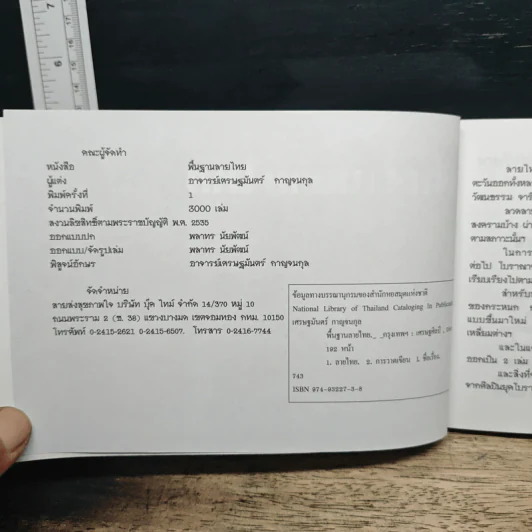 คณะผู้จัดทำ
หนังสือ พื้นฐานลายไทย
ผู้แต่ง อาจารย์เศรษฐมันตร์ กาญจนกุล
พิมพ์ครั้งที่ 1
จำนวนพิมพ์ 3000 เล่ม
สงวนลิขสิทธิ์ตามพระราชบัญญัติ พ.ศ. 2535
ออกแบบปก พลาทร นัยพัฒน์
ออกแบบ/จัดรูปเล่ม พลาทร นัยพัฒน์
พิสูจน์อักษร อาจารย์เศรษฐมันตร์ กาญจนกุล
จัดจำหน่าย
สายส่งสุขภาพใจ บริษัท บุ๊ค ไทม์ จำกัด 14/370 หมู่ 10
ถนนพระราม 2 (ซ. 38) แขวงบางมด เขตจอมทอง กทม. 10150
โทรศัพท์ 0-2415-2621 0-2415-6507. โทรสาร 0-2416-7744
ข้อมูลทางบรรณานุกรมของสำนักหอสมุดแห่งชาติ
National Library of Thailand Cataloging in Publication
เศรษฐมันตร์ กาญจนกุล
พื้นฐานลายไทย._ _กรุงเทพฯ : เศรษฐศิลป์ ,
192 หน้า
1. ลายไทย. 2. การวาดเขียน I. ชื่อเรื่อง.
743
ISBN 974-93227-3-8
ลายไท
ตะวันออกทั้งหล
วัฒนธรรม จารี
ลวดลาย
สงครามบ้าง ผ่า
ตามสภาวะนั้นๆ
ในการ
ต่อไป โบราณา
เรียบเรียงไปตาม
สำหรับ
ของกระหนก
แบบขึ้นมาใหม่
เหลี่ยมต่างๆ
และในแ
ออกเป็น 2 เล่ม
และสิ่งที่
จากศิลปินยุคโบรา
7
6